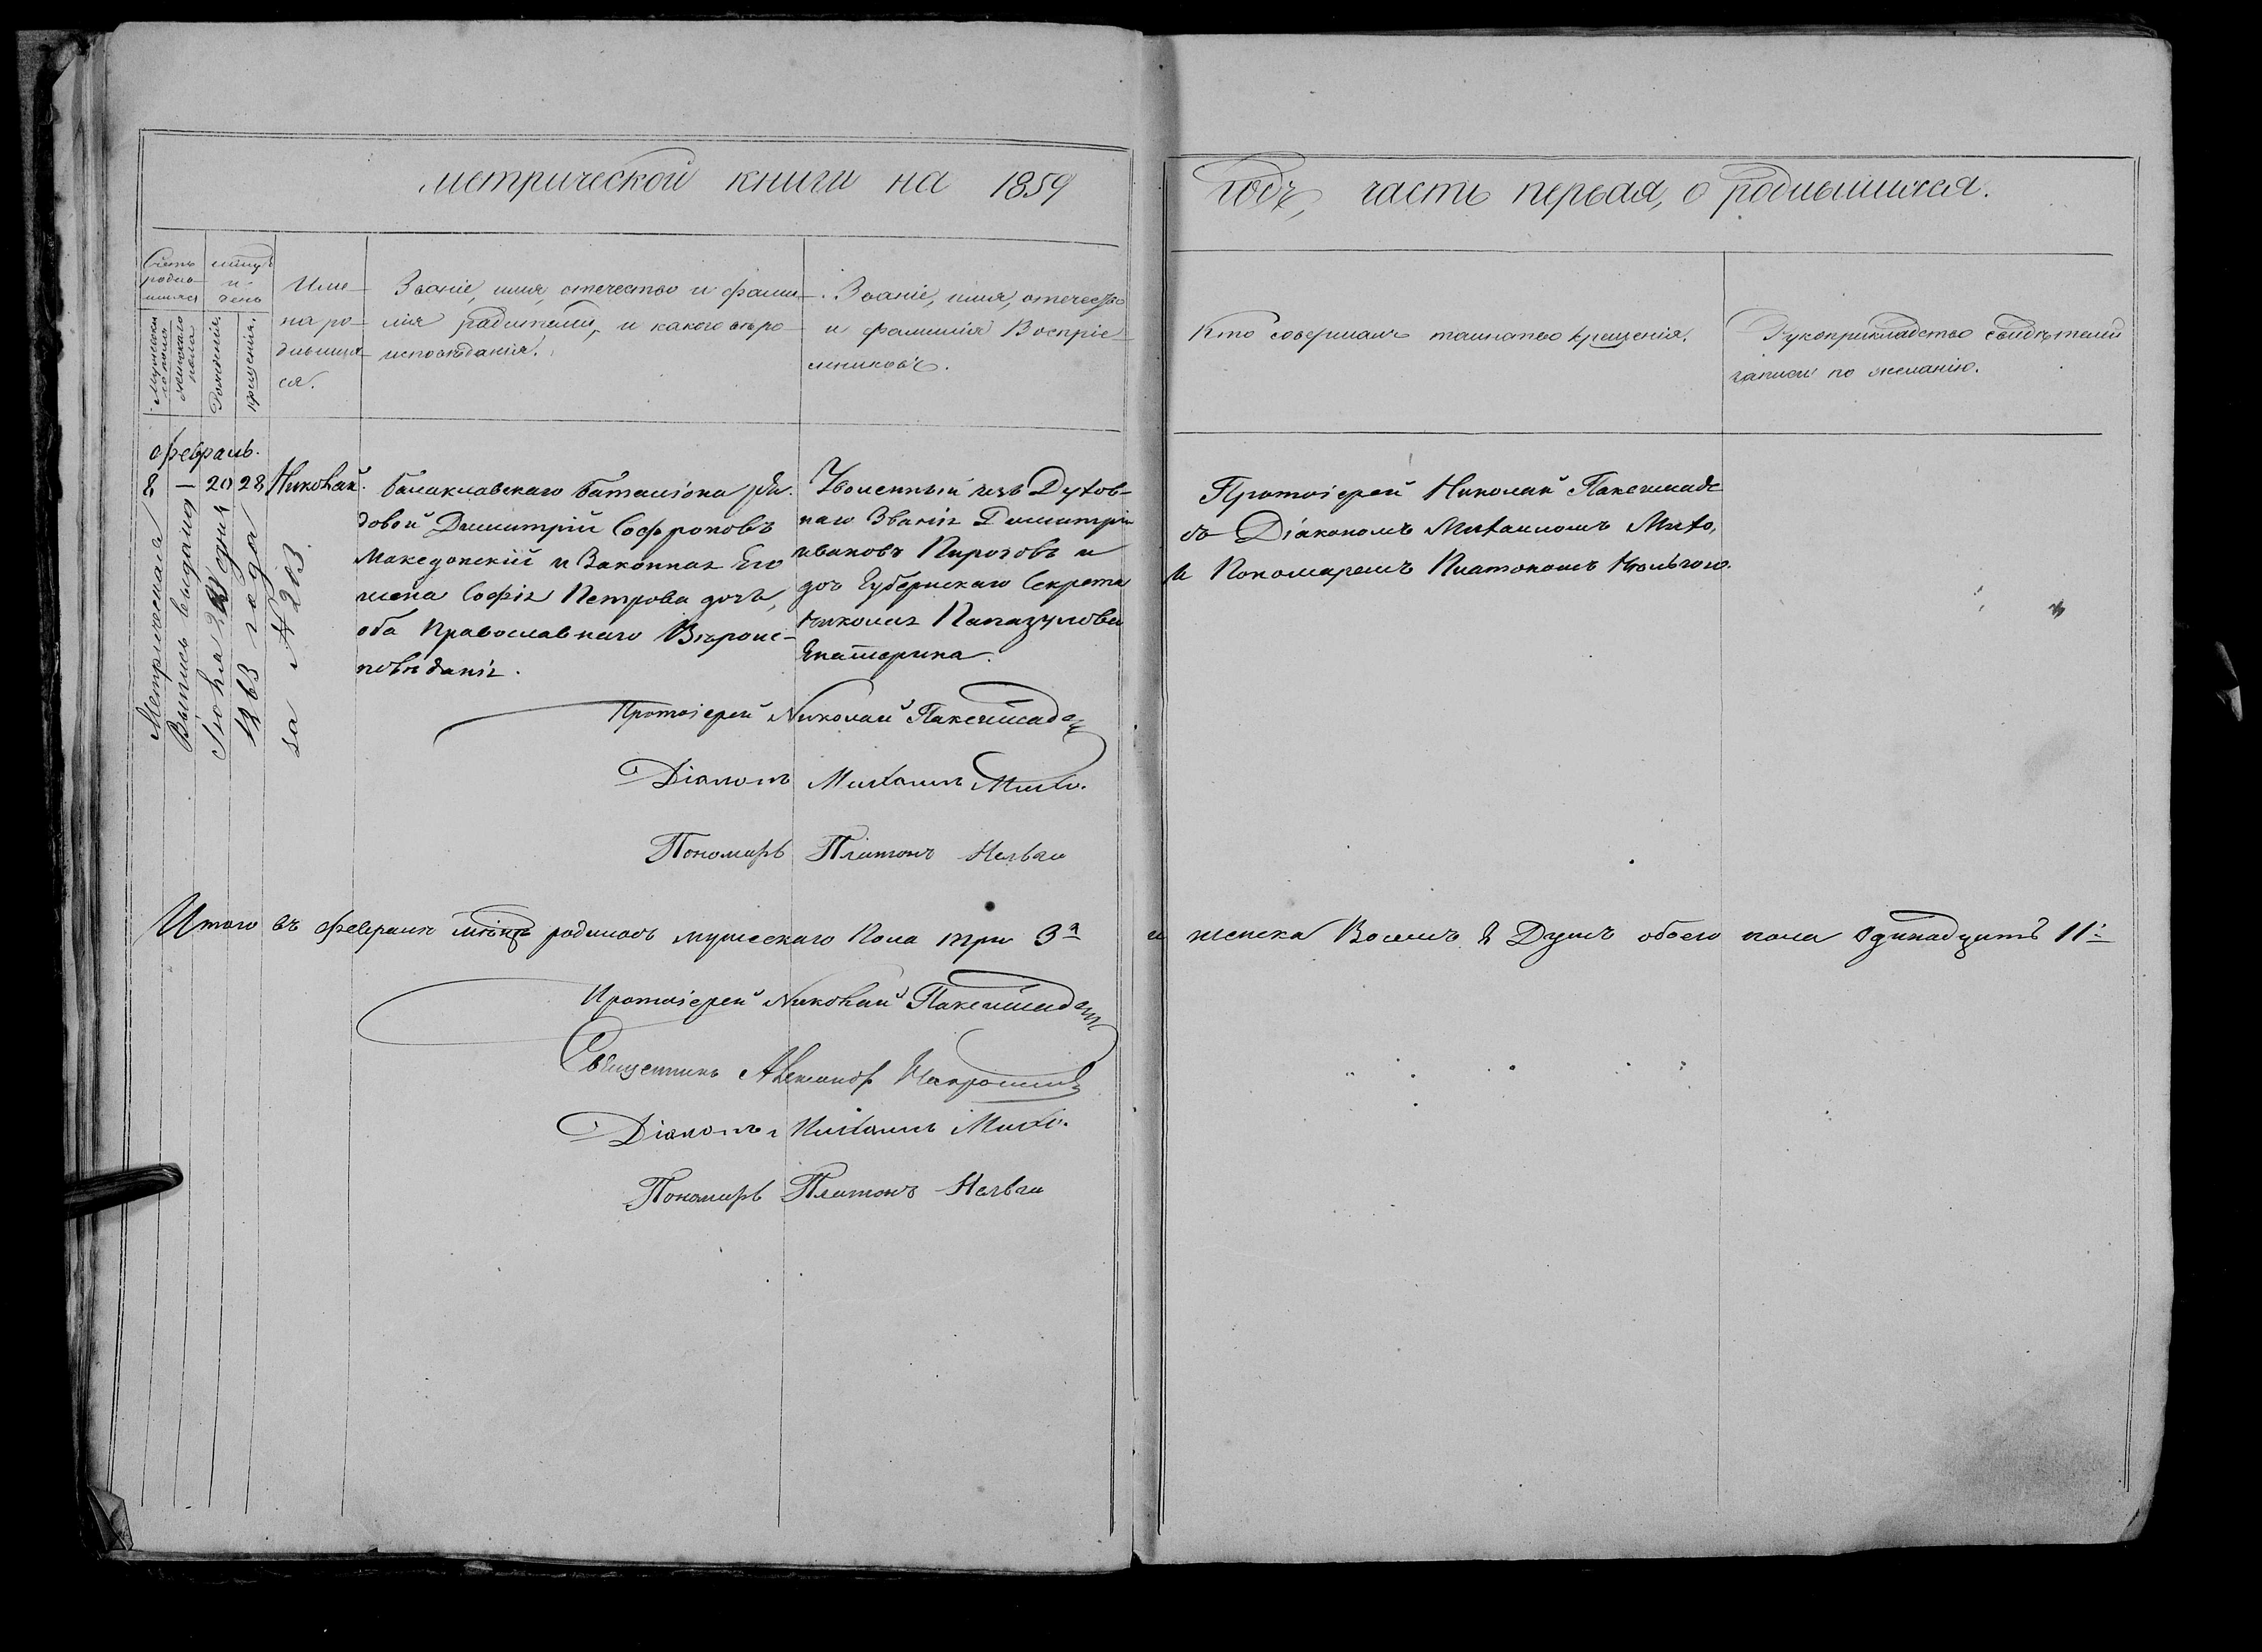 метрической книги на 1859
годъ, часть первая, о родившихся.
Счетъ родив-
шихся
мѣсяцъ
и
день
Мужеска
го пола
Женскаго
пола
Рожденія.
Крещенія.
Имена ро-
дившихся.
Званіе, имя, отечество и фами-
лія родителей, и какого вѣро-
исповѣданія.
Званіе, имя, отечество
и фамилія Воспріе-
мниковъ.
Кто совершалъ таинство крещенія.
Рукоприкладство свидѣтелей
записи по желанію.
Февраль.
8 — 20 28 Николай.
Балаклавскаго баталіона ря-
довой Димитрій Софроновъ
Македонскій и Законная Его
жена Софія Петрова дочь,
оба Православнаго Вѣроис-
повѣданія.
Уволенный изъ Духов-
наго Званія Димитрій
ивановъ Пироговъ и
доч Губернскаго Секрета
Николая
Екатерина.
Протоіерей Николай Паксимаде
съ Діакономъ Михаиломъ Михо,
и Пономаремъ Платономъ
Метрическая
Выпись выдана
Іюня дня
1863 года
за № 203.
Протоіерей Николай Паксимаде
Діаконъ Михаилъ Михо.
Пономарь Платонъ
Итого въ Февралѣ мѣсяцѣ родилось мужескаго Пола три 3
и женска Восемь 8 Душъ обоего пола Одинадцать 11
Протоіерей Николай Паксимаде
Священникъ Александр
Діаконъ Михаилъ Михо.
Пономарь Платонъ